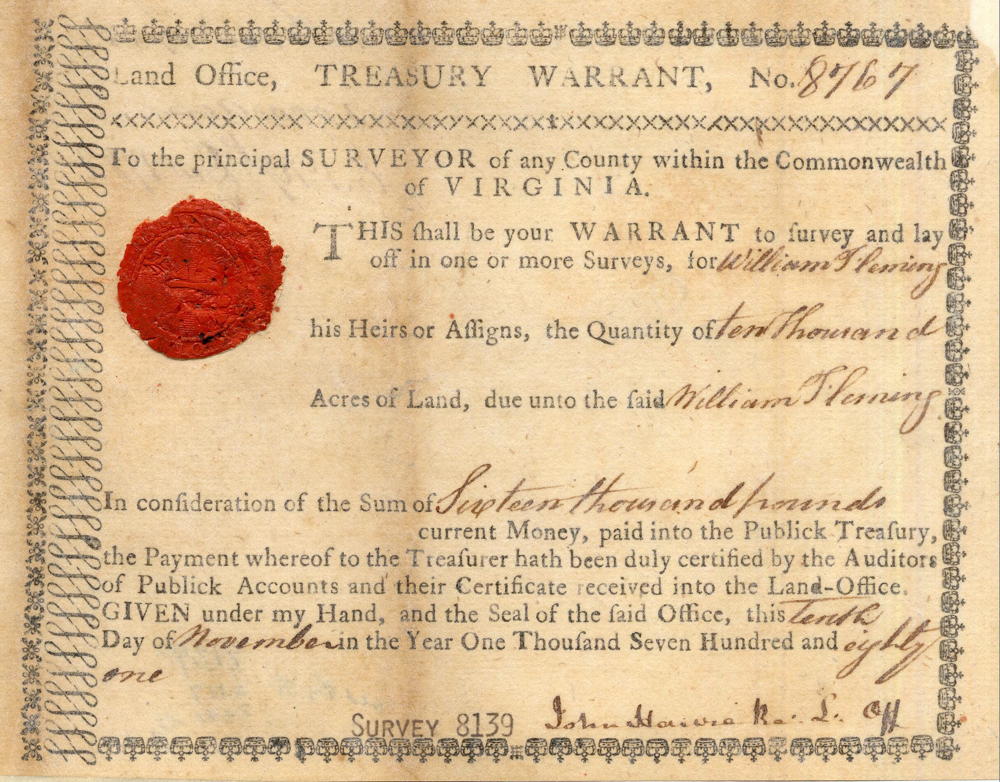 Land Office, TREASURY WARRANT, No. 8767
To the principal SURVEYOR of any County within the Commonwealth
of VIRGINIA.
THIS ſhall be your WARRANT to ſurvey and lay
off in one or more Surveys, for William Fleming
his Heirs or Aſſigns, the Quantity of ten thousand
Acres of Land, due unto the ſaid William Fleming
In conſideration of the Sum of Sixteen thousand pounds
current Money, paid into the Publick Treaſury,
the Payment whereof to the Treaſurer hath been duly certified by the Auditors
of Publick Accounts and their Certificate received into the Land-Office.
GIVEN under my Hand, and the Seal of the ſaid Office, this tenth
Day of November in the Year One Thouſand Seven Hundred and eighty
one
SURVEY 8139 John Harvie Re. L. Off